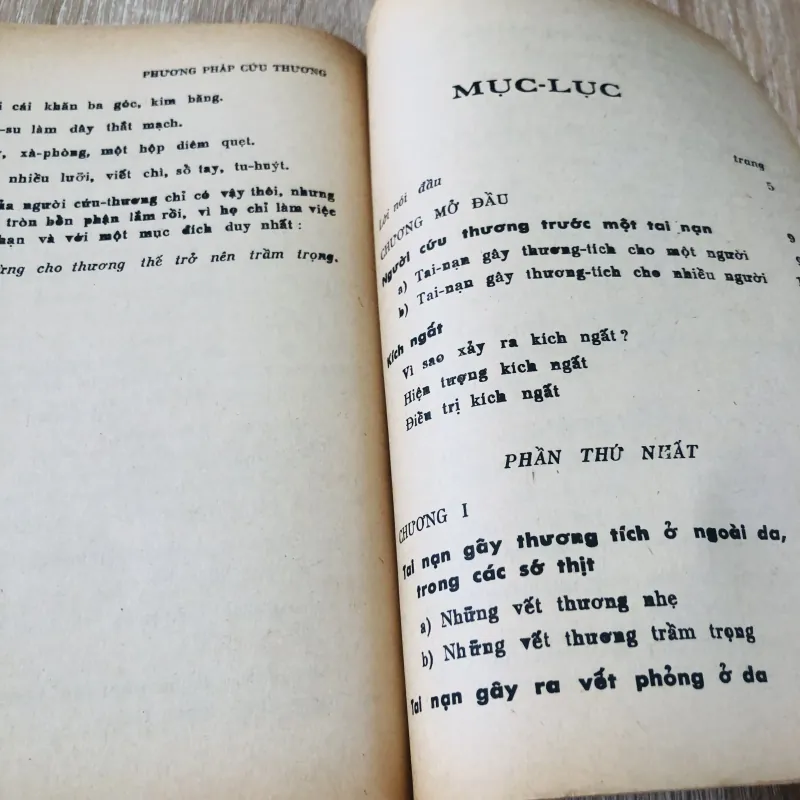 PHƯƠNG PHÁP CỨU THƯƠNG
cái khăn ba góc, kim băng.
-su làm dây thắt mạch.
xà-phòng, một hộp diêm quẹt.
nhiều lưỡi, viết chì, sổ tay, tu-huýt.
của người cứu-thương chỉ có vậy thôi, nhưng
tròn bổn phận lắm rồi, vì họ chỉ làm việc
hạn và với một mục đích duy nhất :
cho thương thế trở nên trầm trọng.
MỤC-LỤC
trang
Lời nói đầu 5
CHƯƠNG MỞ ĐẦU
Người cứu thương trước một tai nạn 9
a) Tai-nạn gây thương-tích cho một người
b) Tai-nạn gây thương-tích cho nhiều người
Kích ngất
Vì sao xảy ra kích ngất ?
Hiện tượng kích ngất
Điều trị kích ngất
PHẦN THỨ NHẤT
CHƯƠNG I
Tai nạn gây thương tích ở ngoài da,
trong các sớ thịt
a) Những vết thương nhẹ
b) Những vết thương trầm trọng
Tai nạn gây ra vết phỏng ở da